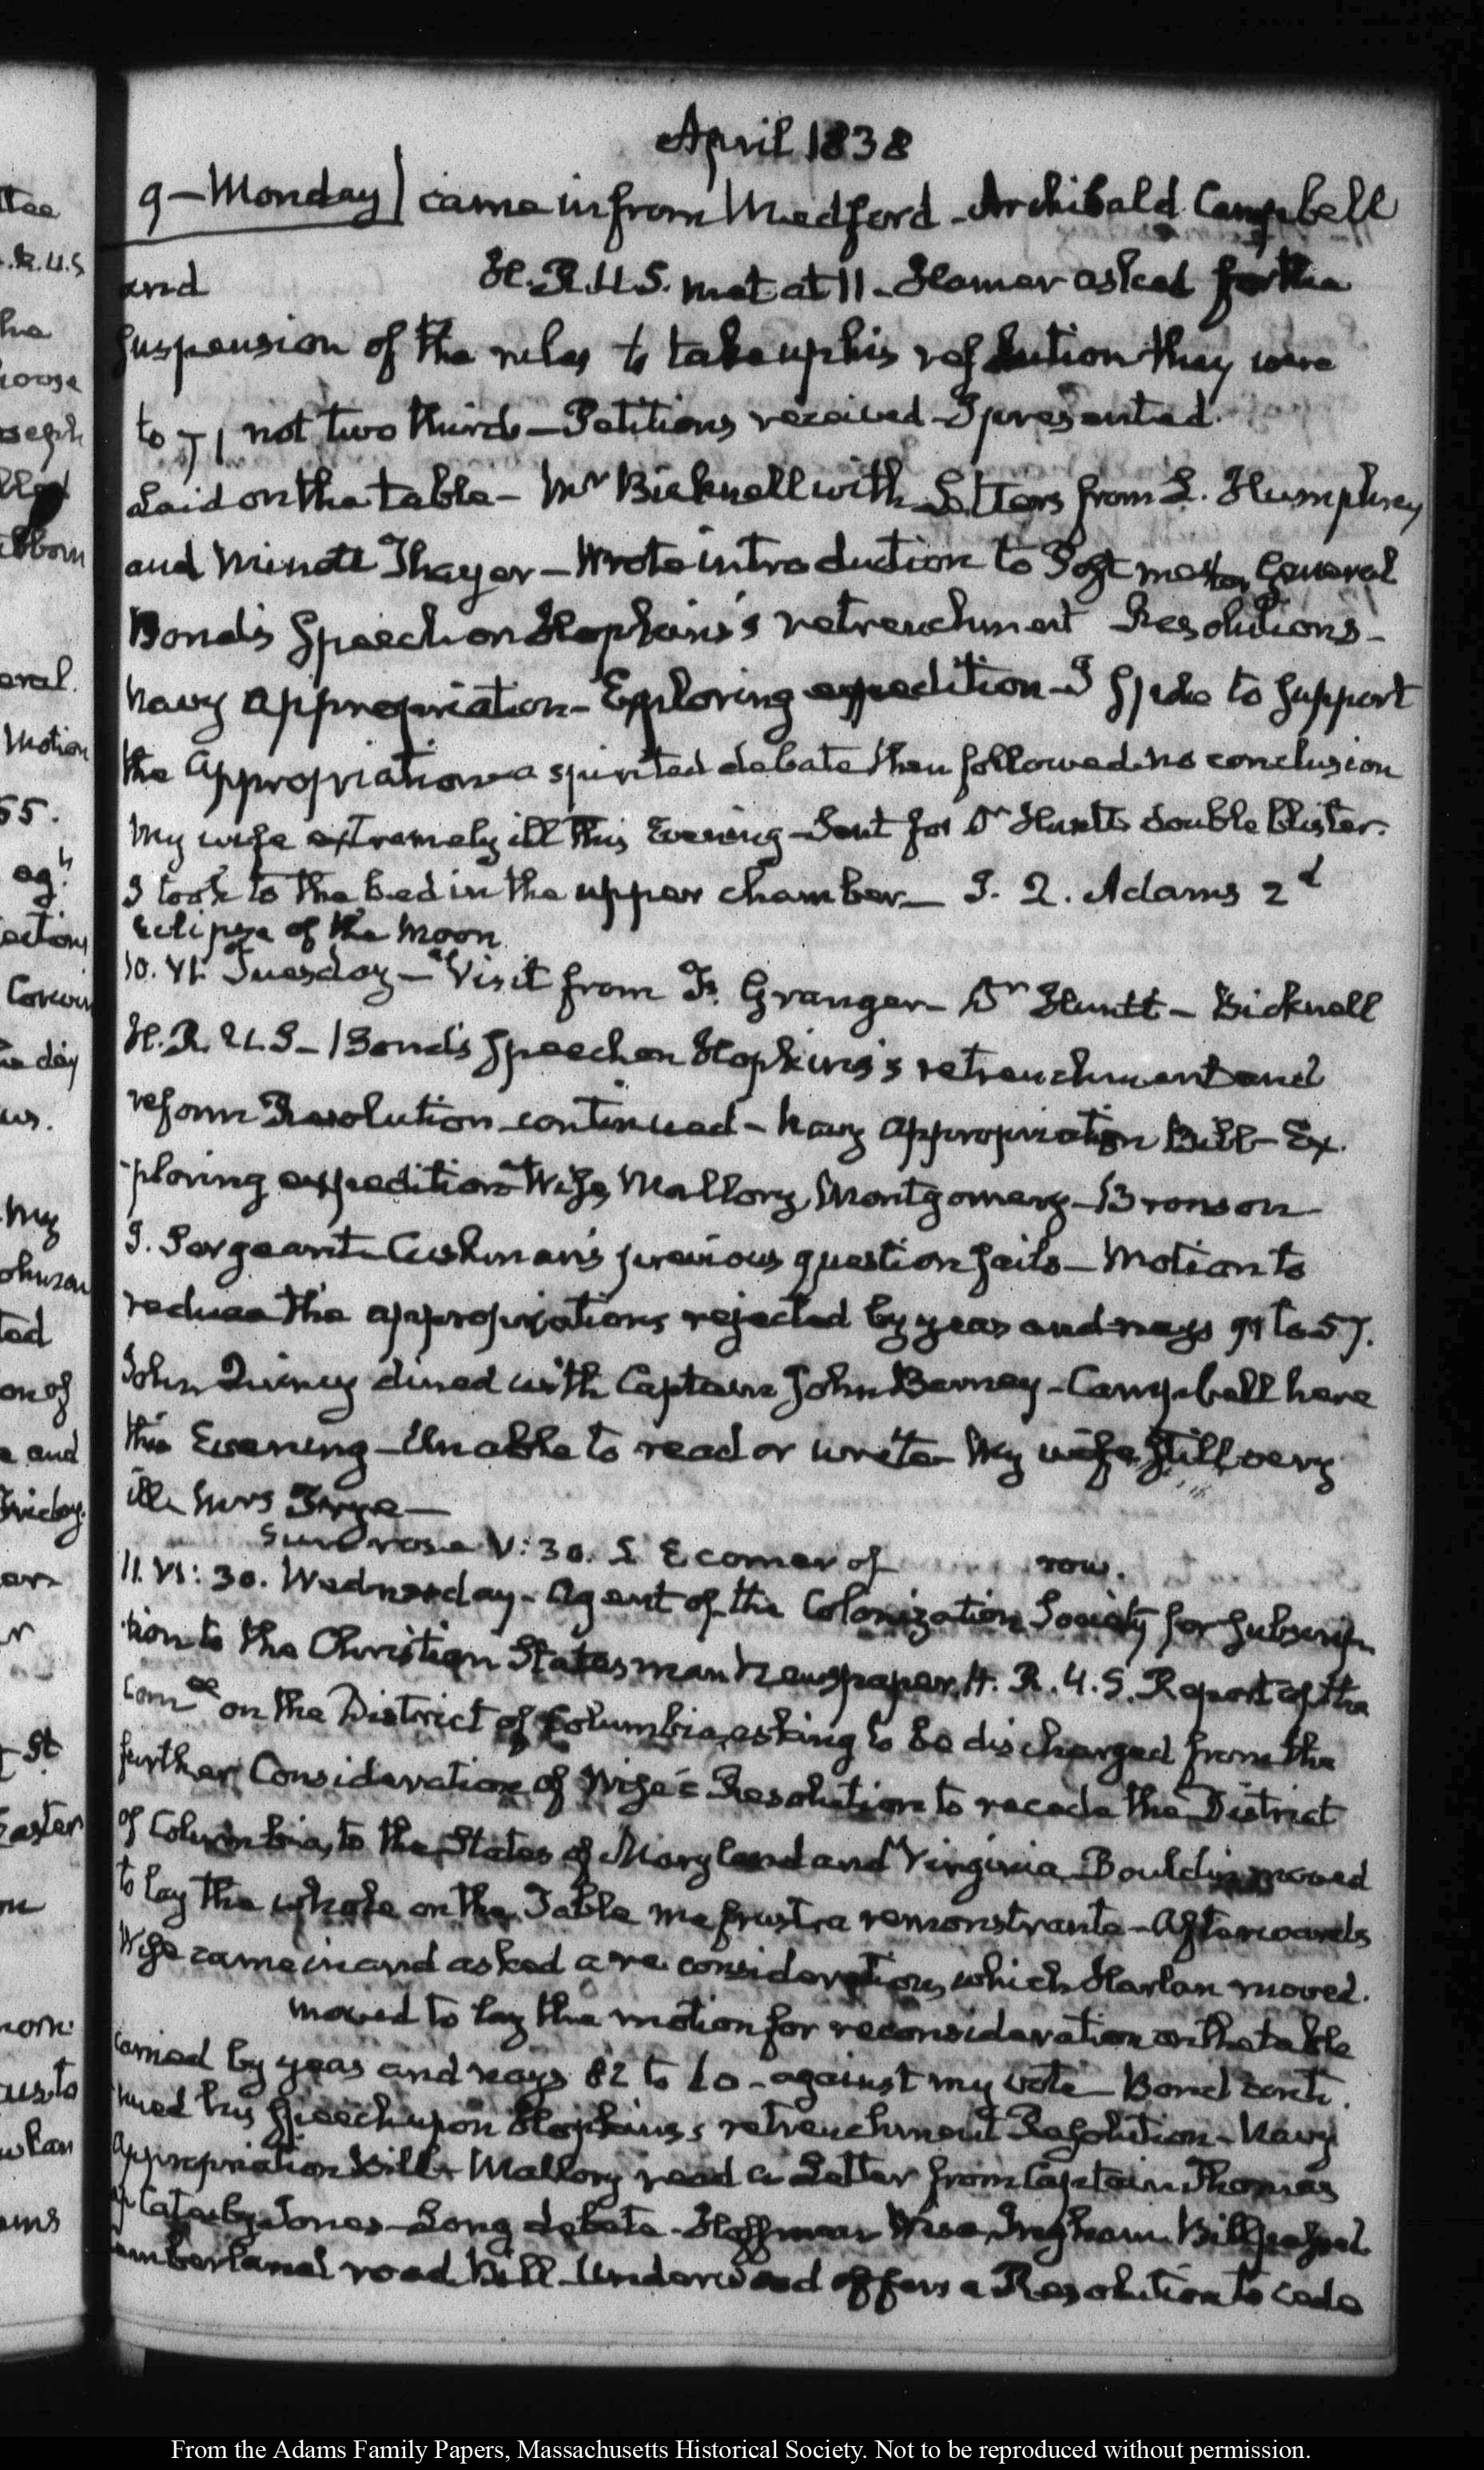 April 1838
9 – Monday) came in from Medford – Archibald Campbell
and H. R. U. S. met at 11 – Hamer asked for the
suspension of the rules to take up his resolution they were
to 71 not two thirds – Petitions received – I presented
Laid on the table – Mr Bicknell with Letters from L. Humphrey
and Minott Thayer – Wrote introduction to Post master General
Bond's Speech on Hopkins's retrenchment Resolutions –
Navy appropriation – Exploring expedition – I spoke to support
the appropriation – a spirited debate then followed no conclusion
My wife extremely ill this Evening – Sent for Dr Huntt double blister.
I took to the bed in the upper chamber – J. Q. Adams 2d
Eclipse of the Moon
10. VI. Tuesday – Visit from F. Granger – Dr Huntt – Bicknell
H. R. U. S – Bond's speech on Hopkins's retrenchment and
reform Resolution continued – Navy appropriation Bill – Ex.
ploring expedition – Wise, Mallory, Montgomery – Bronson
J. Sergeant – Cushman's previous question fails – Motion to
reduce the appropriations rejected by yeas and nays 91 to 57.
John Quincy dined with Captain John Barney – Campbell here
this Evening – Unable to read or write – My wife still very
ill Mrs Frye –
Sun rose V: 30. S E corner of row.
11. VI: 30. Wednesday – Agent of the Colonization Society for Subscrip
tion to the Christian Statesman Newspaper. H. R. U. S. Report of the
Comee on the District of Columbia, asking to be discharged from the
further Consideration of Wise's Resolution to recede the District
of Columbia, to the States of Maryland and Virginia Bouldin moved
to lay the whole on the Table me frustra remonstrante – Afterwards
Wise came in and asked a re. consideration, which Harlan moved.
moved to lay the motion for reconsideration on the table
carried by yeas and nays 82 to 60 – against my vote – Bond conti.
nued his speech upon Hopkins's retrenchment Resolution – Navy
Appropriation Bill – Mallory read a Letter from Captain Thomas
Ap Catesby Jones – Long debate – Hoffman Wise, Ingham. Bill
Cumberland road Bill – Underwood offers a Resolution to cede
From the Adams Family Papers, Massachusetts Historical Society. Not to be reproduced without permission.